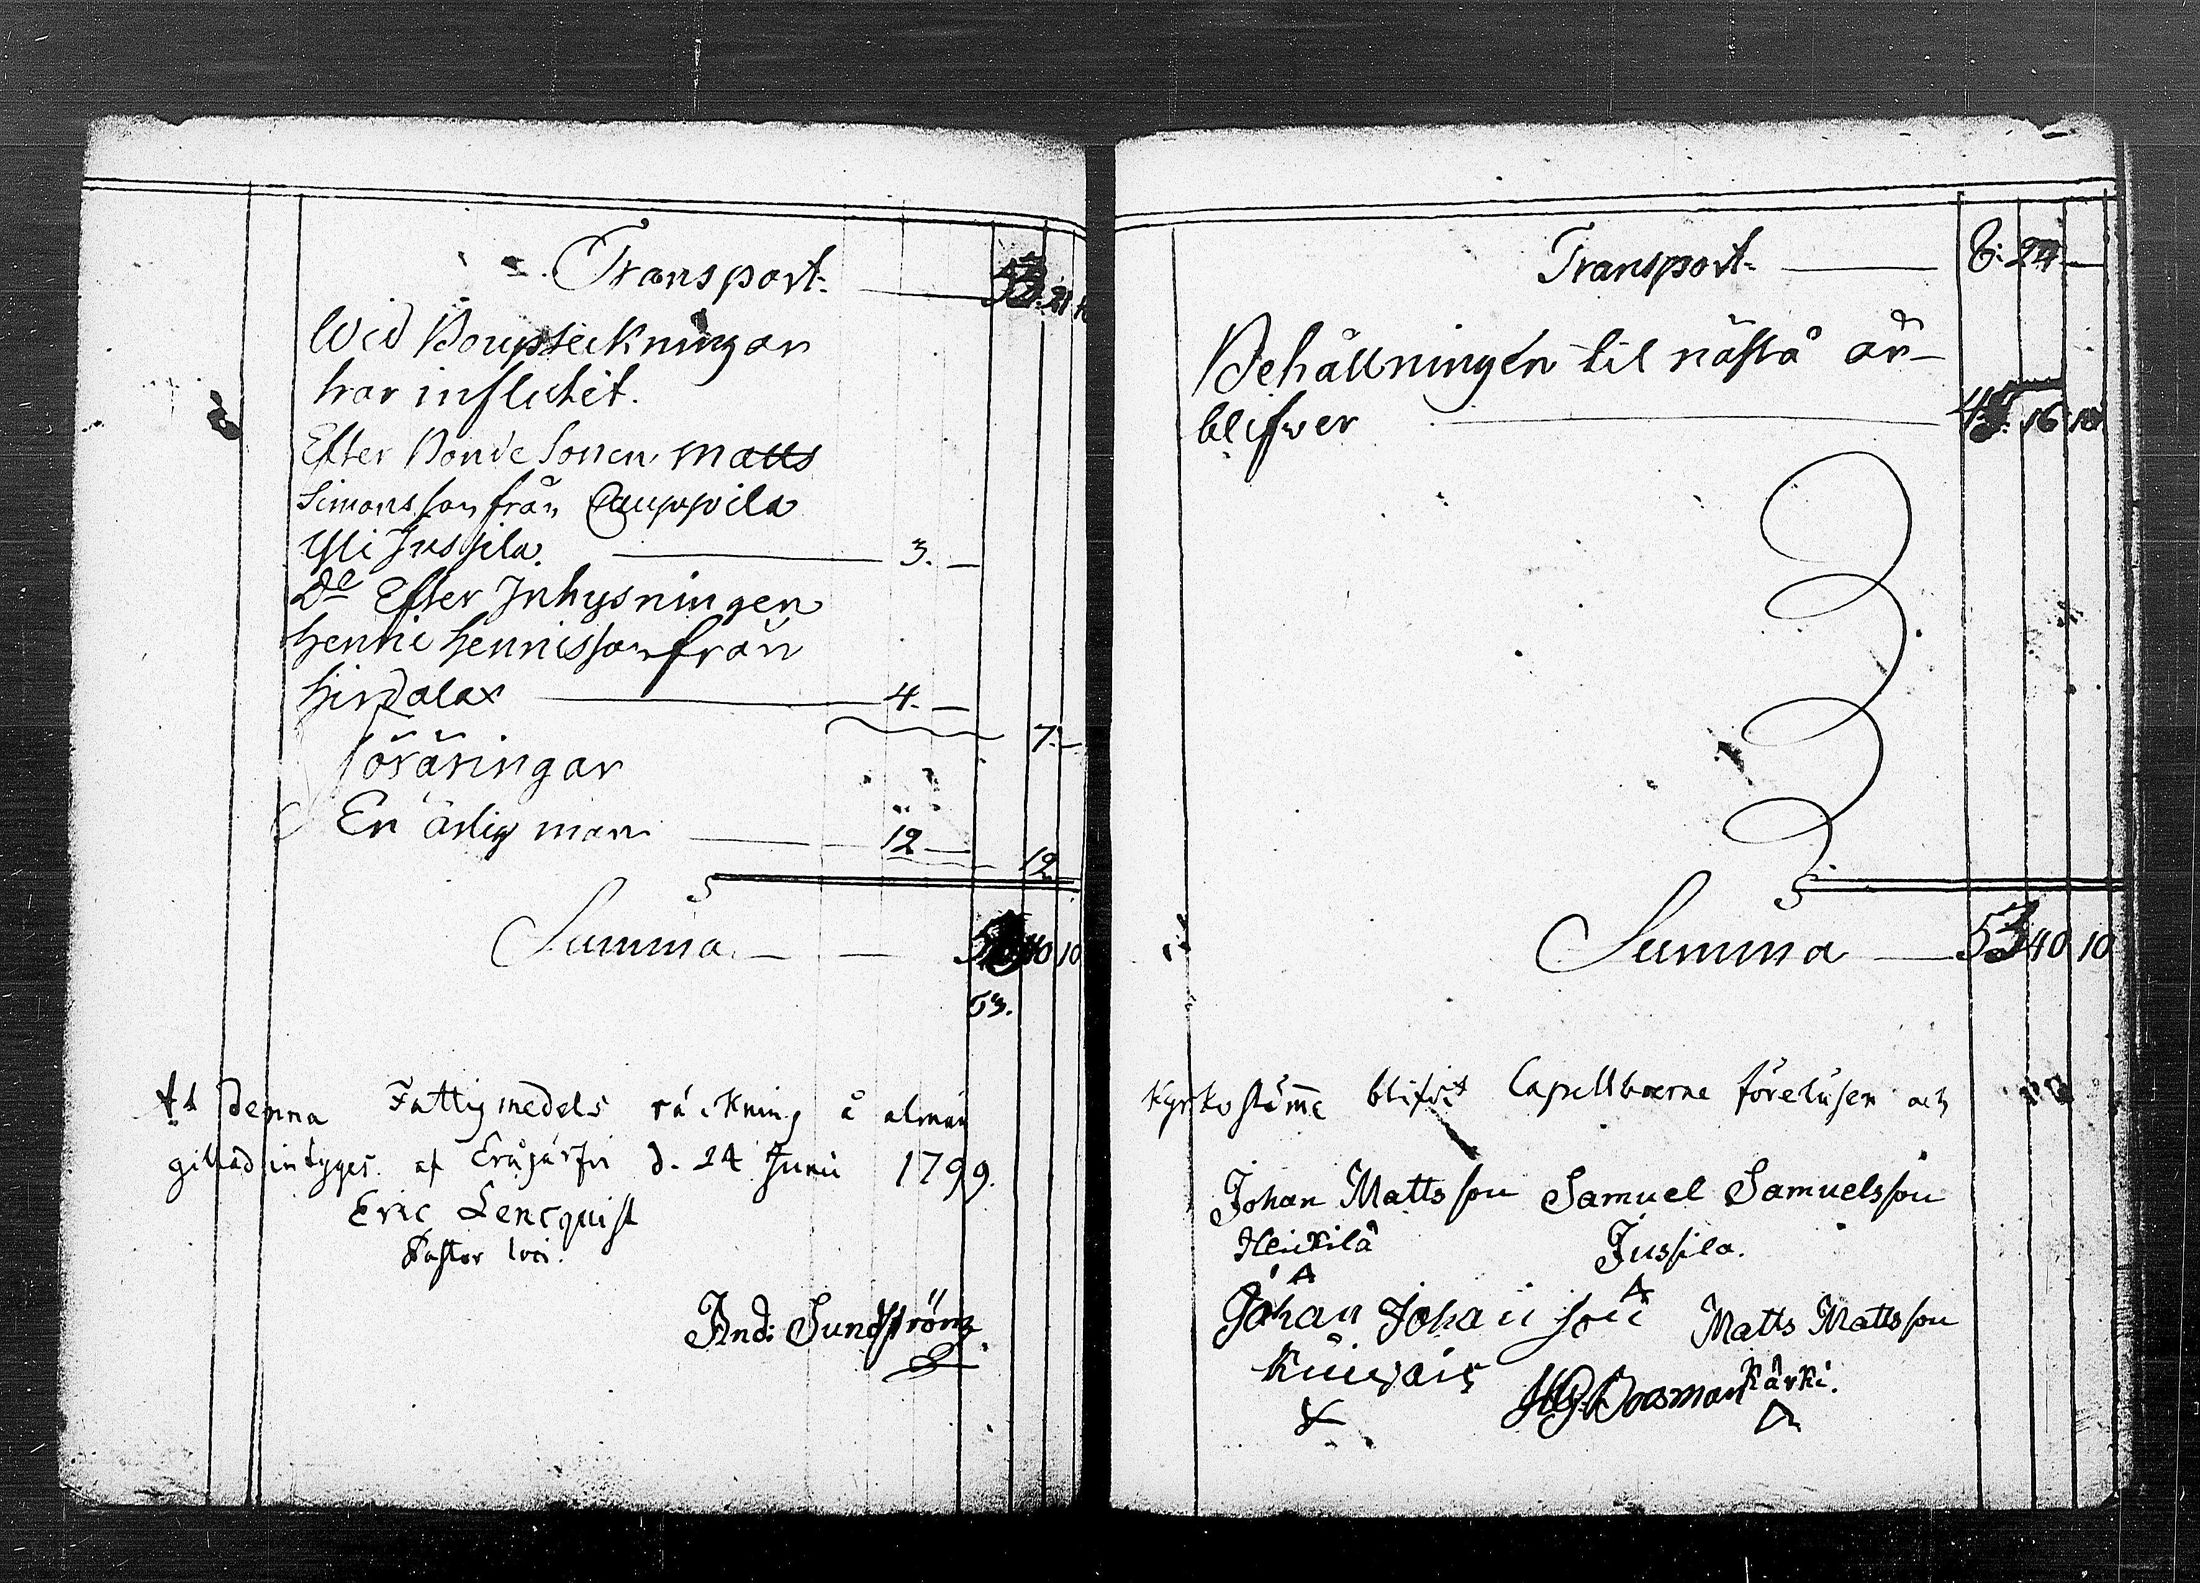 Transport. 53. 21. 10
Wid Boupteckningar
har influtit.
Efter Bonde Sonen Matts
Simonsson från Cauppila
Yli Jussila. 3. —
Do Efter Inhysningen
Henric Hennisson från
Hirdalax 4. —
7. —
föräringar
En ärlig man 12 —
12
Summa. 40 10
53.
At denna Fattigmedels räckning å almän
gillad intyges af Eräjärfvi d. 24 Junii 1799.
Eric Lencquist
Pastor loci.
And: Sundström
Transport. 8. 24 —
Behållningen til nästa år
blifver 45. 16 10
Summa 53 40 10
Kyrkostämma blifvit Capellboerne föreläsen och
Johan Matts son Samuel Samuelsson
Heickilä Jussila.
Johan Johan son Matts Mattsson
Kärki.
HG Boosman